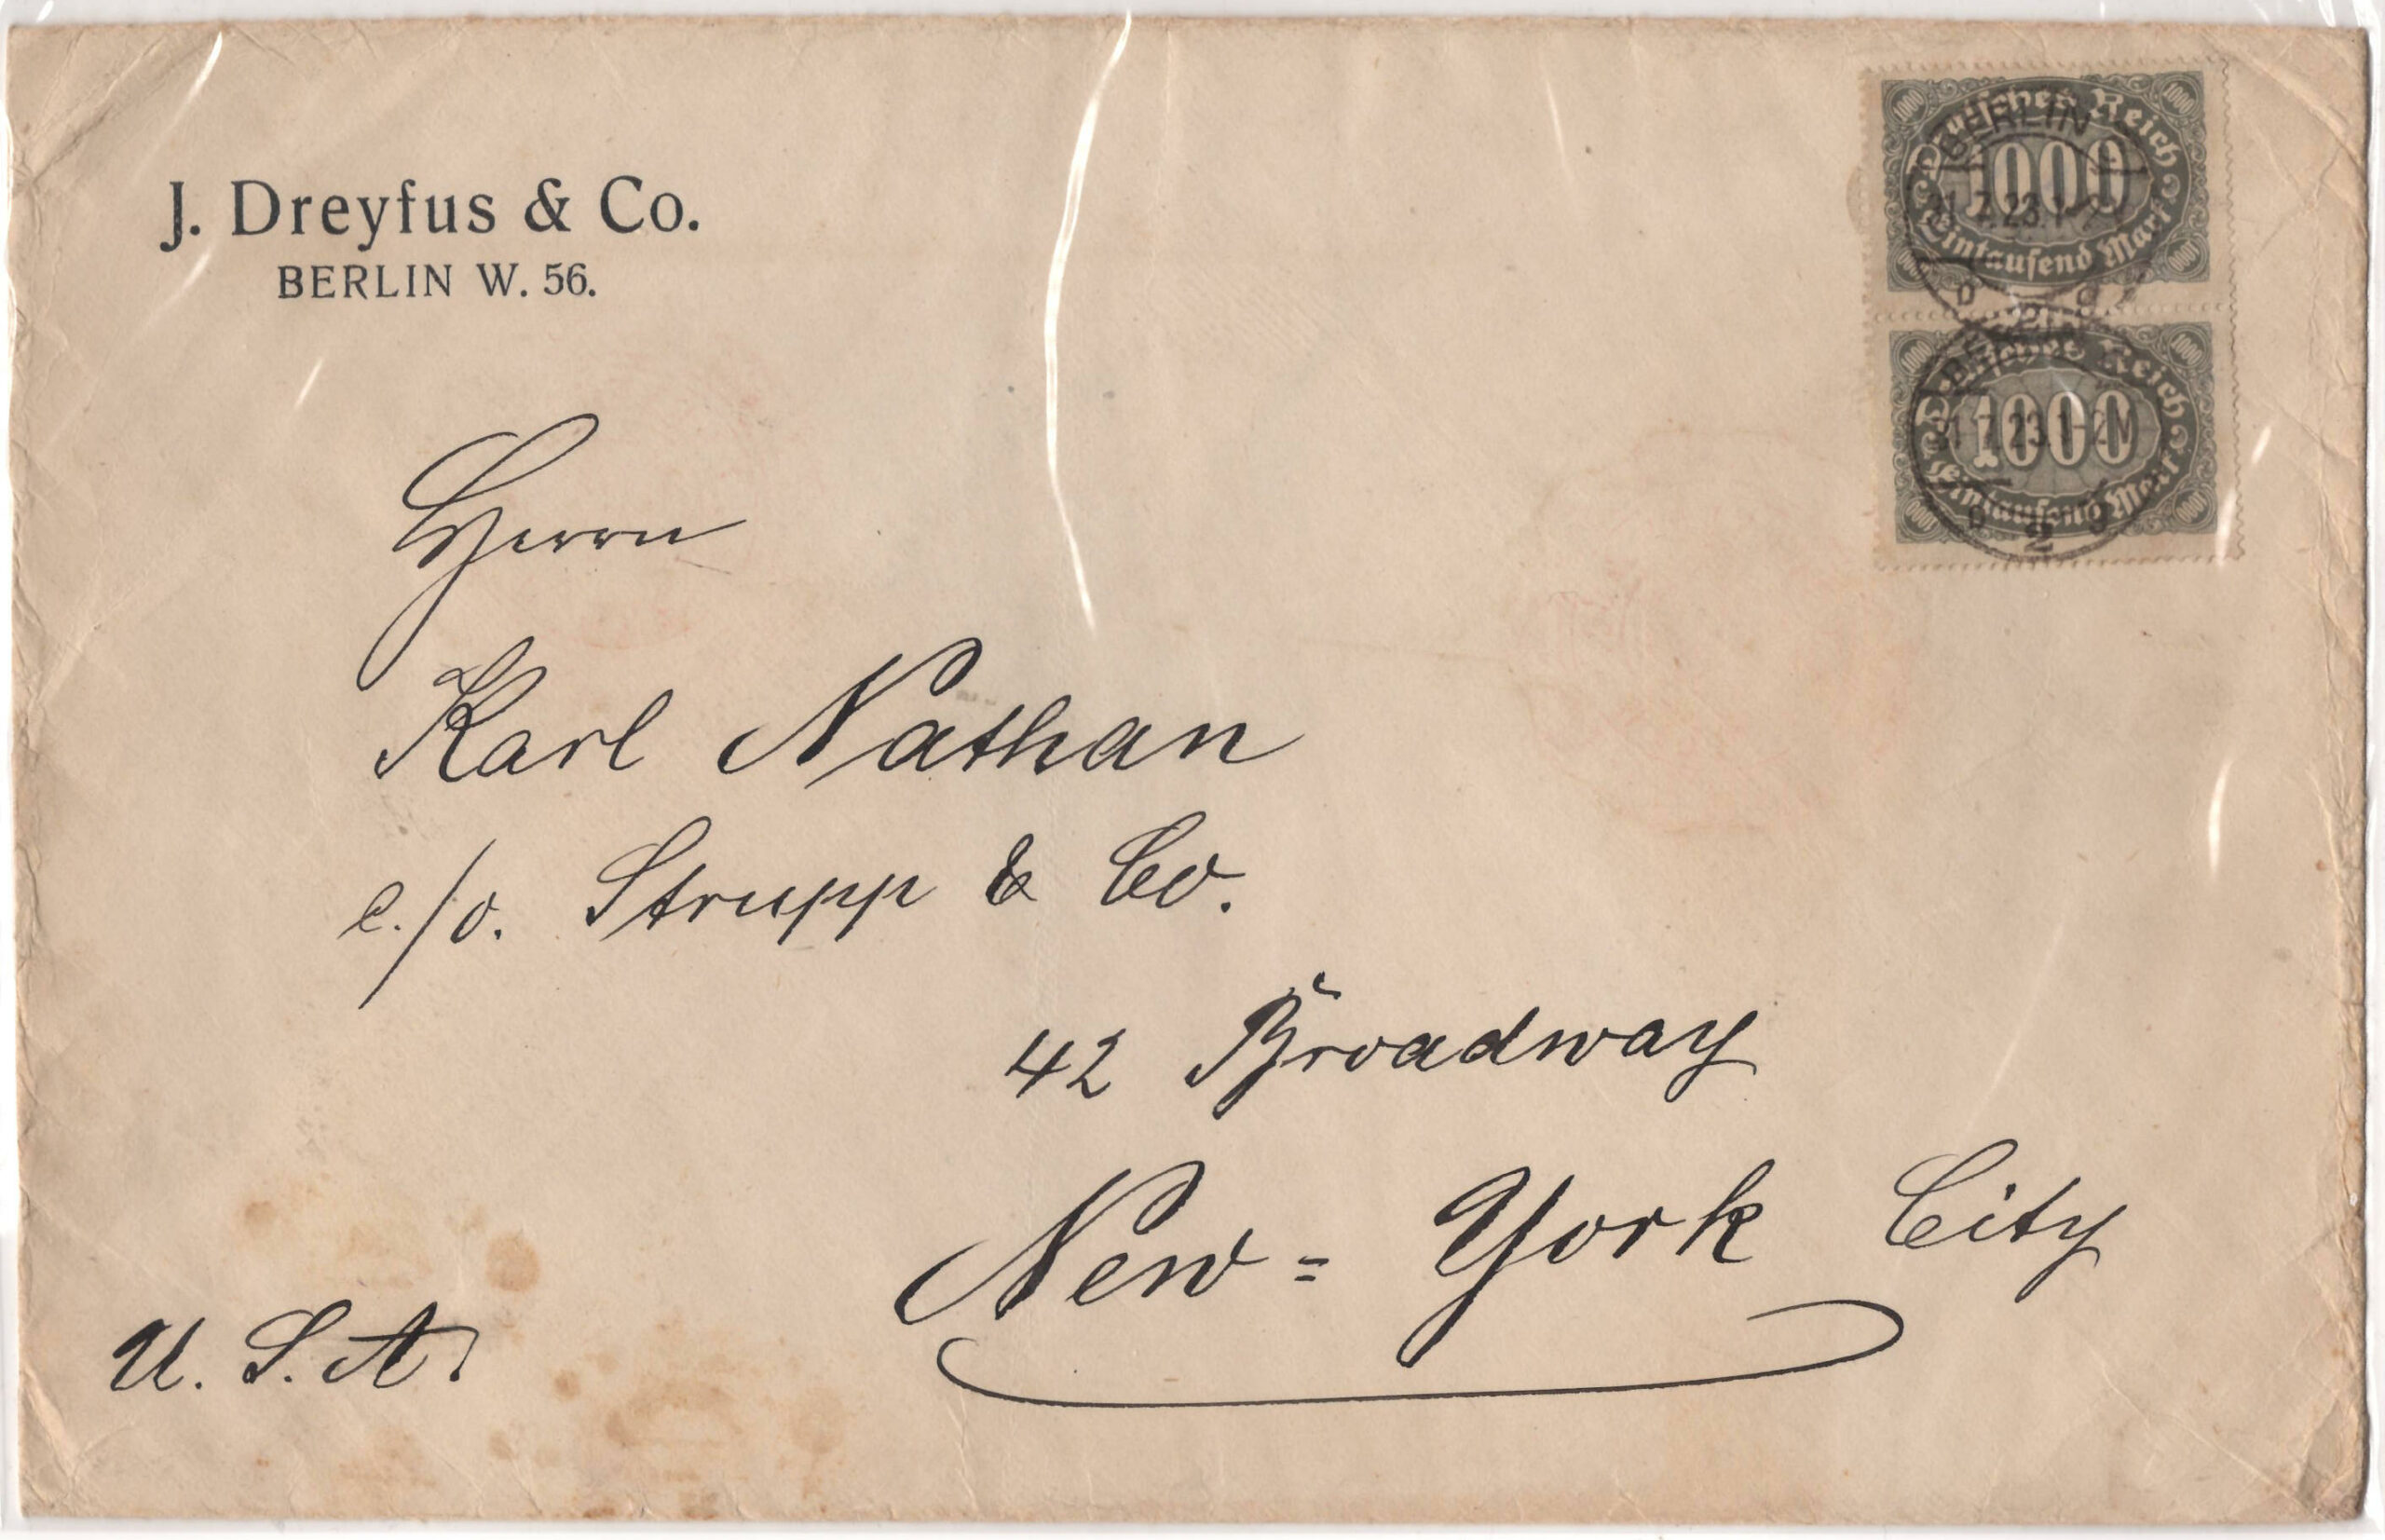 J. Dreyfus & Co.
BERLIN W. 56.
Deutsches Reich
1000
Eintausend Mark
BERLIN
7.23.1-2
Deutsches Reich
1000
Eintausend Mark
7.23.1-2N
2
Herrn
Karl Nathan
c./o. Strupp & Co.
42 Broadway
New= York City
U. S. A.